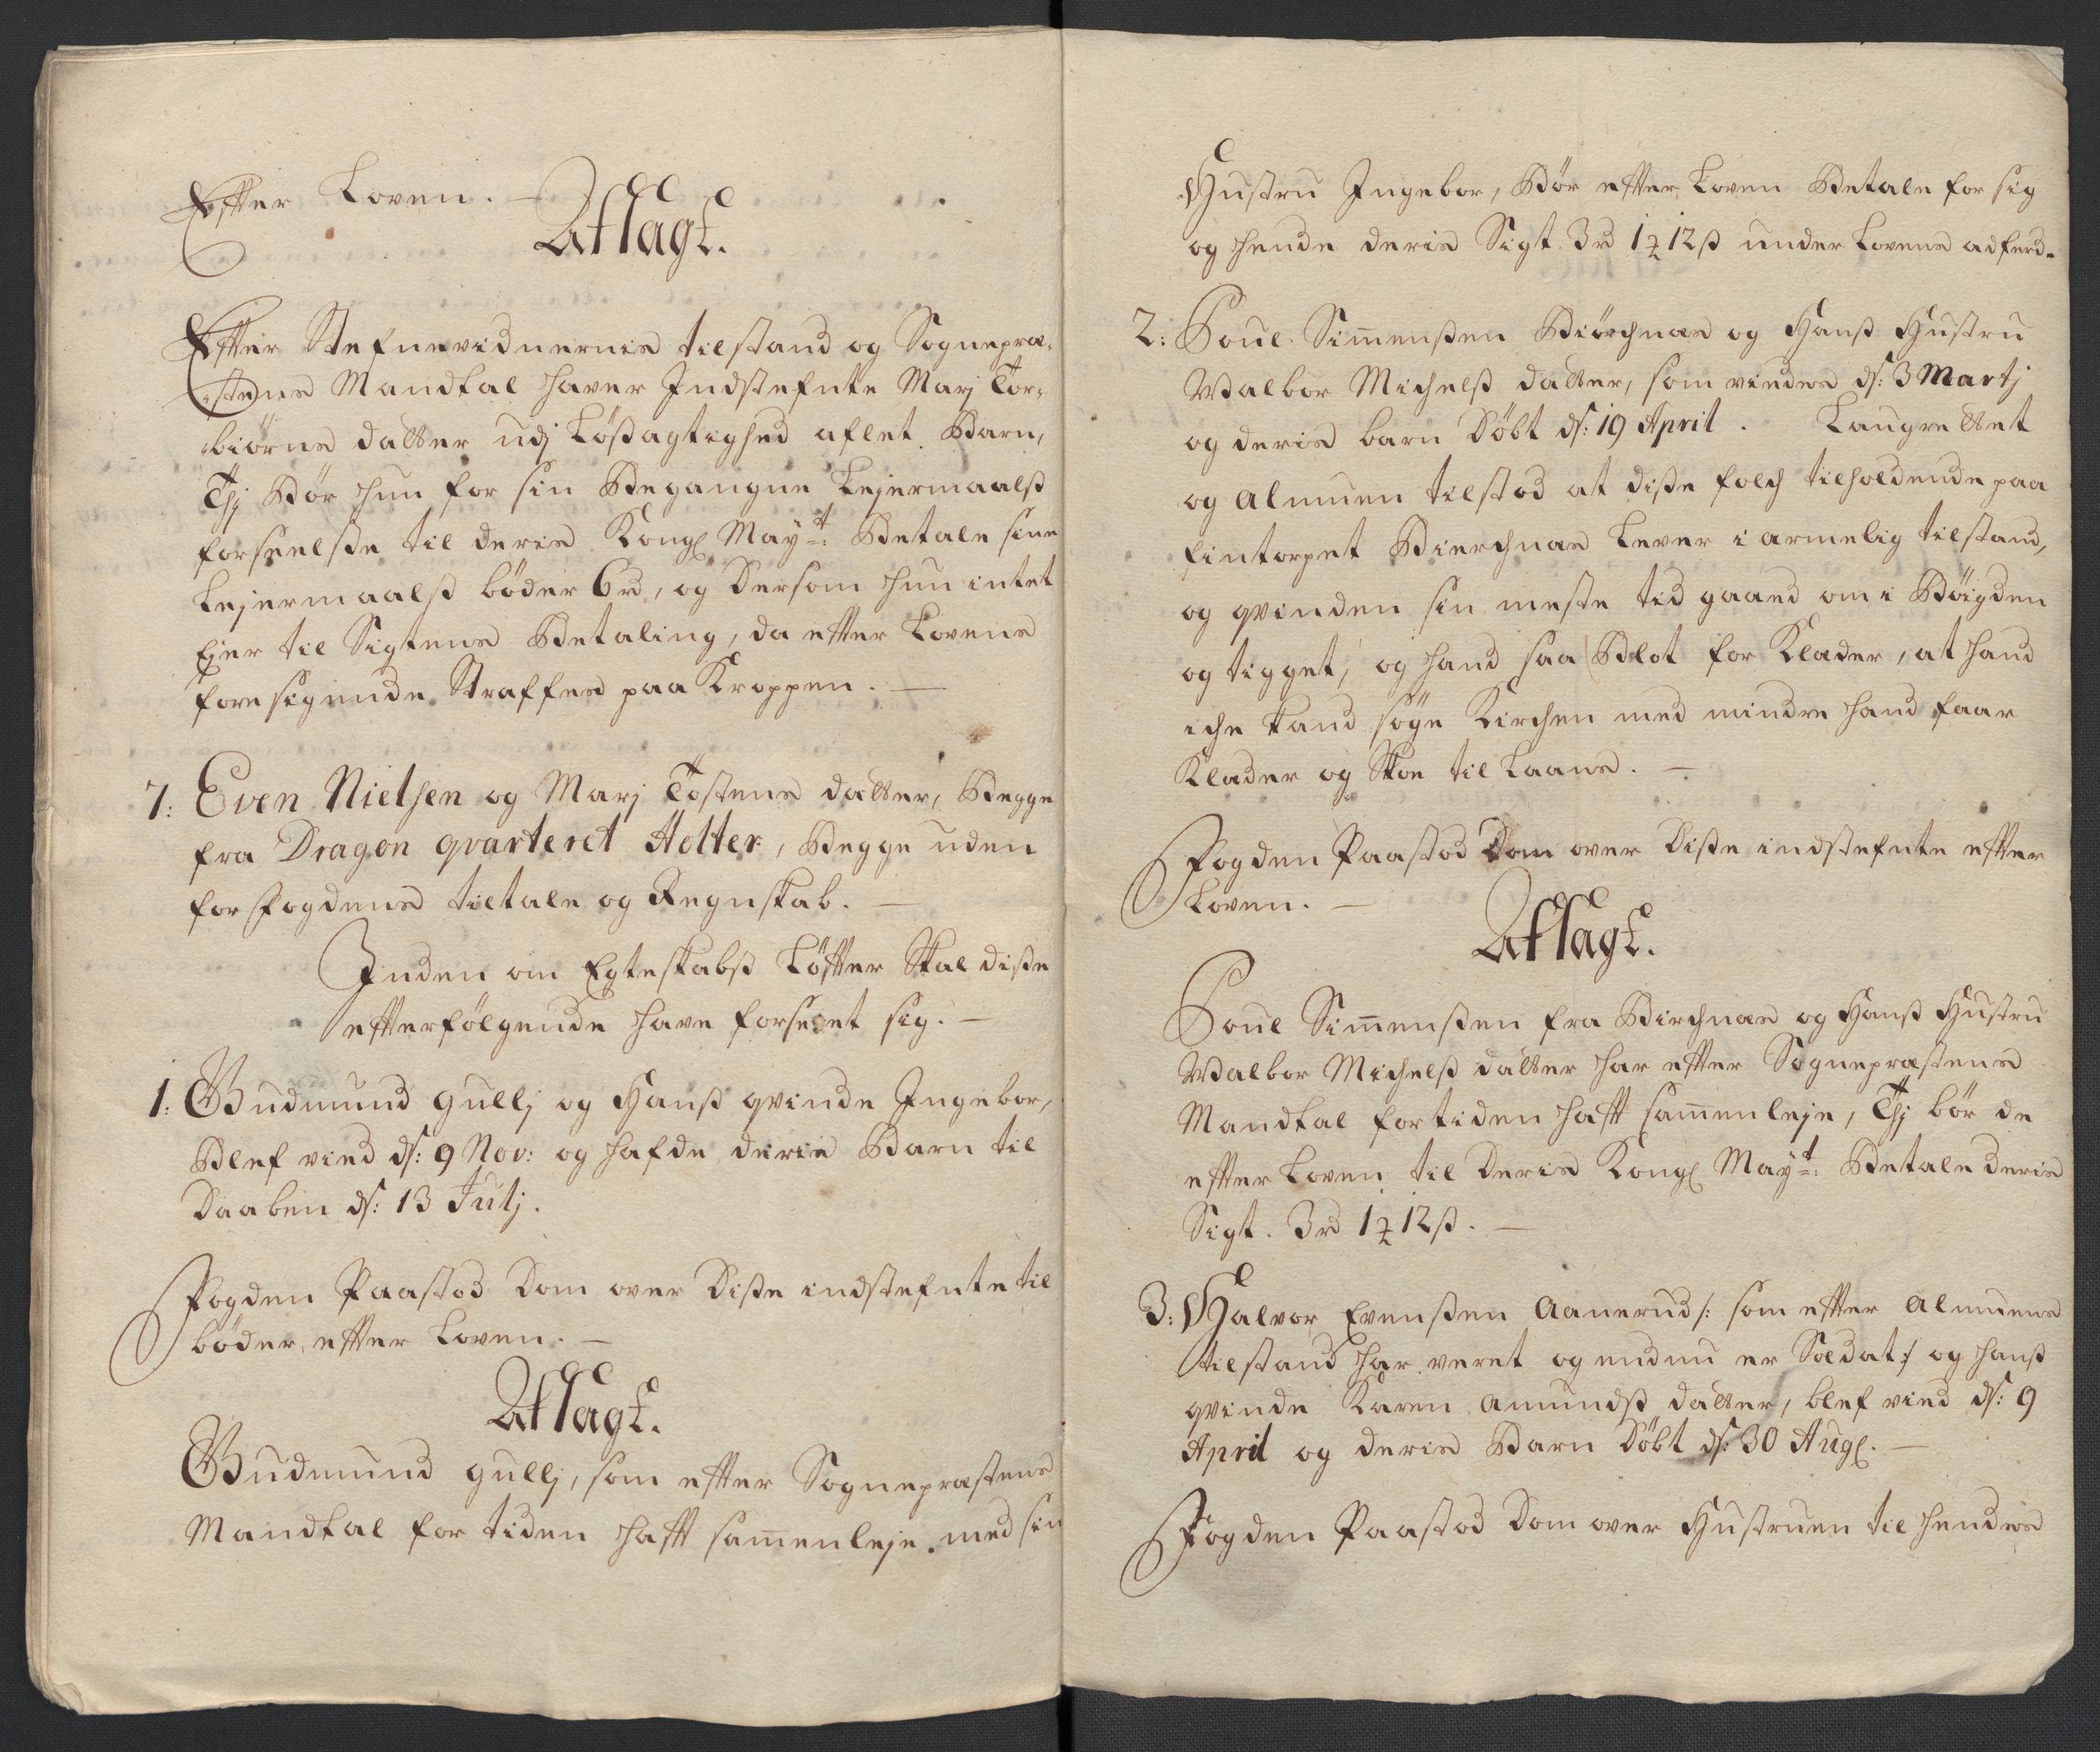 Efter Loven. —
Afsagt.
Efter Stefnevidnernis tilstand og Sognepræ-
stens Mandtal haver Indstefnte Marj Tor-
biørns datter udj Løsagtighed aflet Barn,
Thj Bør hun for sin Begangne Lejermaalsß
forseelse til deris Kongl May:t Betale sine
Lejermaalsß bøder 6 rd, og Dersom hun intet
Ejer til Sigtens Betaling, da efter Lovens
foresigende Straffes paa Kroppen. —
7: Even Nielsen og Marj Tostens datter, Begge
fra Dragon qvarteret Helter, Begge uden
for Fogdens tiltale og Regnskab. —
Inden om Egteskabsß Løfter Skal disse
efterfølgende have forseet sig. —
1: Gudmund gullj og Hanß qvinde Ingebor,
Blef vied ds: 9 Nov: og hafde deris Barn til
Daaben ds: 13 Julj.
Fogden Paastod Dom over Disse indstefnte til
bøder efter Loven. —
Afsagt.
Gudmund gullj, som efter Sognepræstens
Mandtal for tiden hafft sam̄enleje med sin
Hustru Ingebor, Bør efter Loven Betale for sig
og hende deris Sigt 3 rd 1 ꝛ 12 ß under Lovens adferd-
2: Poul Sim̄ensßen Biørchnæs og Hanß Hustru
Walbor Michelsß datter, som viedes ds: 3 Martj
og deris barn Døbt ds: 19 April. Laugrettet
og almuen tilstod at disse folch tilholdende paa
fintorpet Bierchnæs Lever i armelig tilstand,
og qvinden sin meste tid gaaed om i Bøigden
og tigget, og hand saa Blot for Klæder, at hand
iche kand søge Kirchen med mindre hand faar
Klæder og Skoe til Laans. —
Fogden Paastod Dom over Disse indstefnte efter
Loven. —
Afsagt.
Poul Sim̄ensßen fra Birchnæs og Hanß Hustru
Walbor Michelsß datter har efter Sognepræstens
Mandtal fortiden hafft sam̄enleje, Thj bør de
efter Loven til Deris Kongl May:t Betale deris
Sigt. 3 rd 1 ꝛ 12 ß. —
3: Halvor Evensßen Aanerud /: som efter almuens
tilstand har veret og endnu er Soldat :/ og hanß
qvinde Karen Amundsß datter, blef vied ds: 9
April og deris Barn Døbt ds: 30 Aug. —
Fogden Paastod Dom over Hustruen til hendes